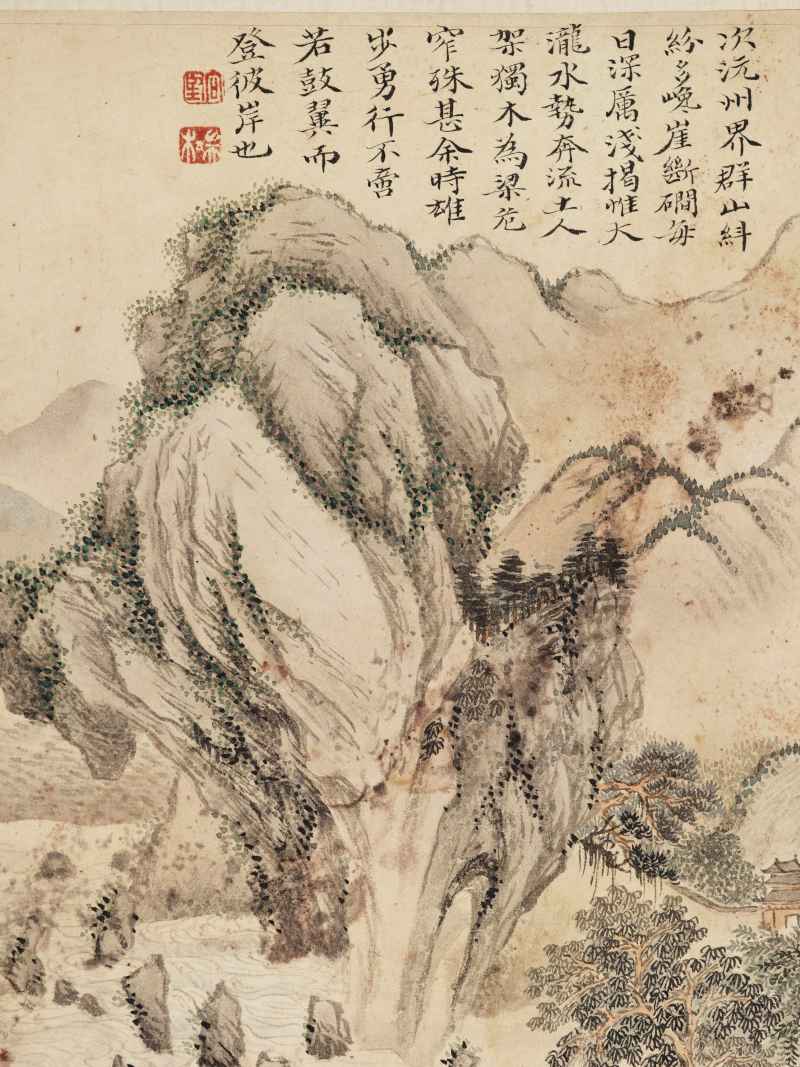 次沅州界群山糾
紛多巉崖斷磵每
日深厲淺揭惟大
瀧水勢奔流土人
架獨木為梁危
窄殊甚余時雄
步勇行不啻
若鼓翼而
登彼岸也